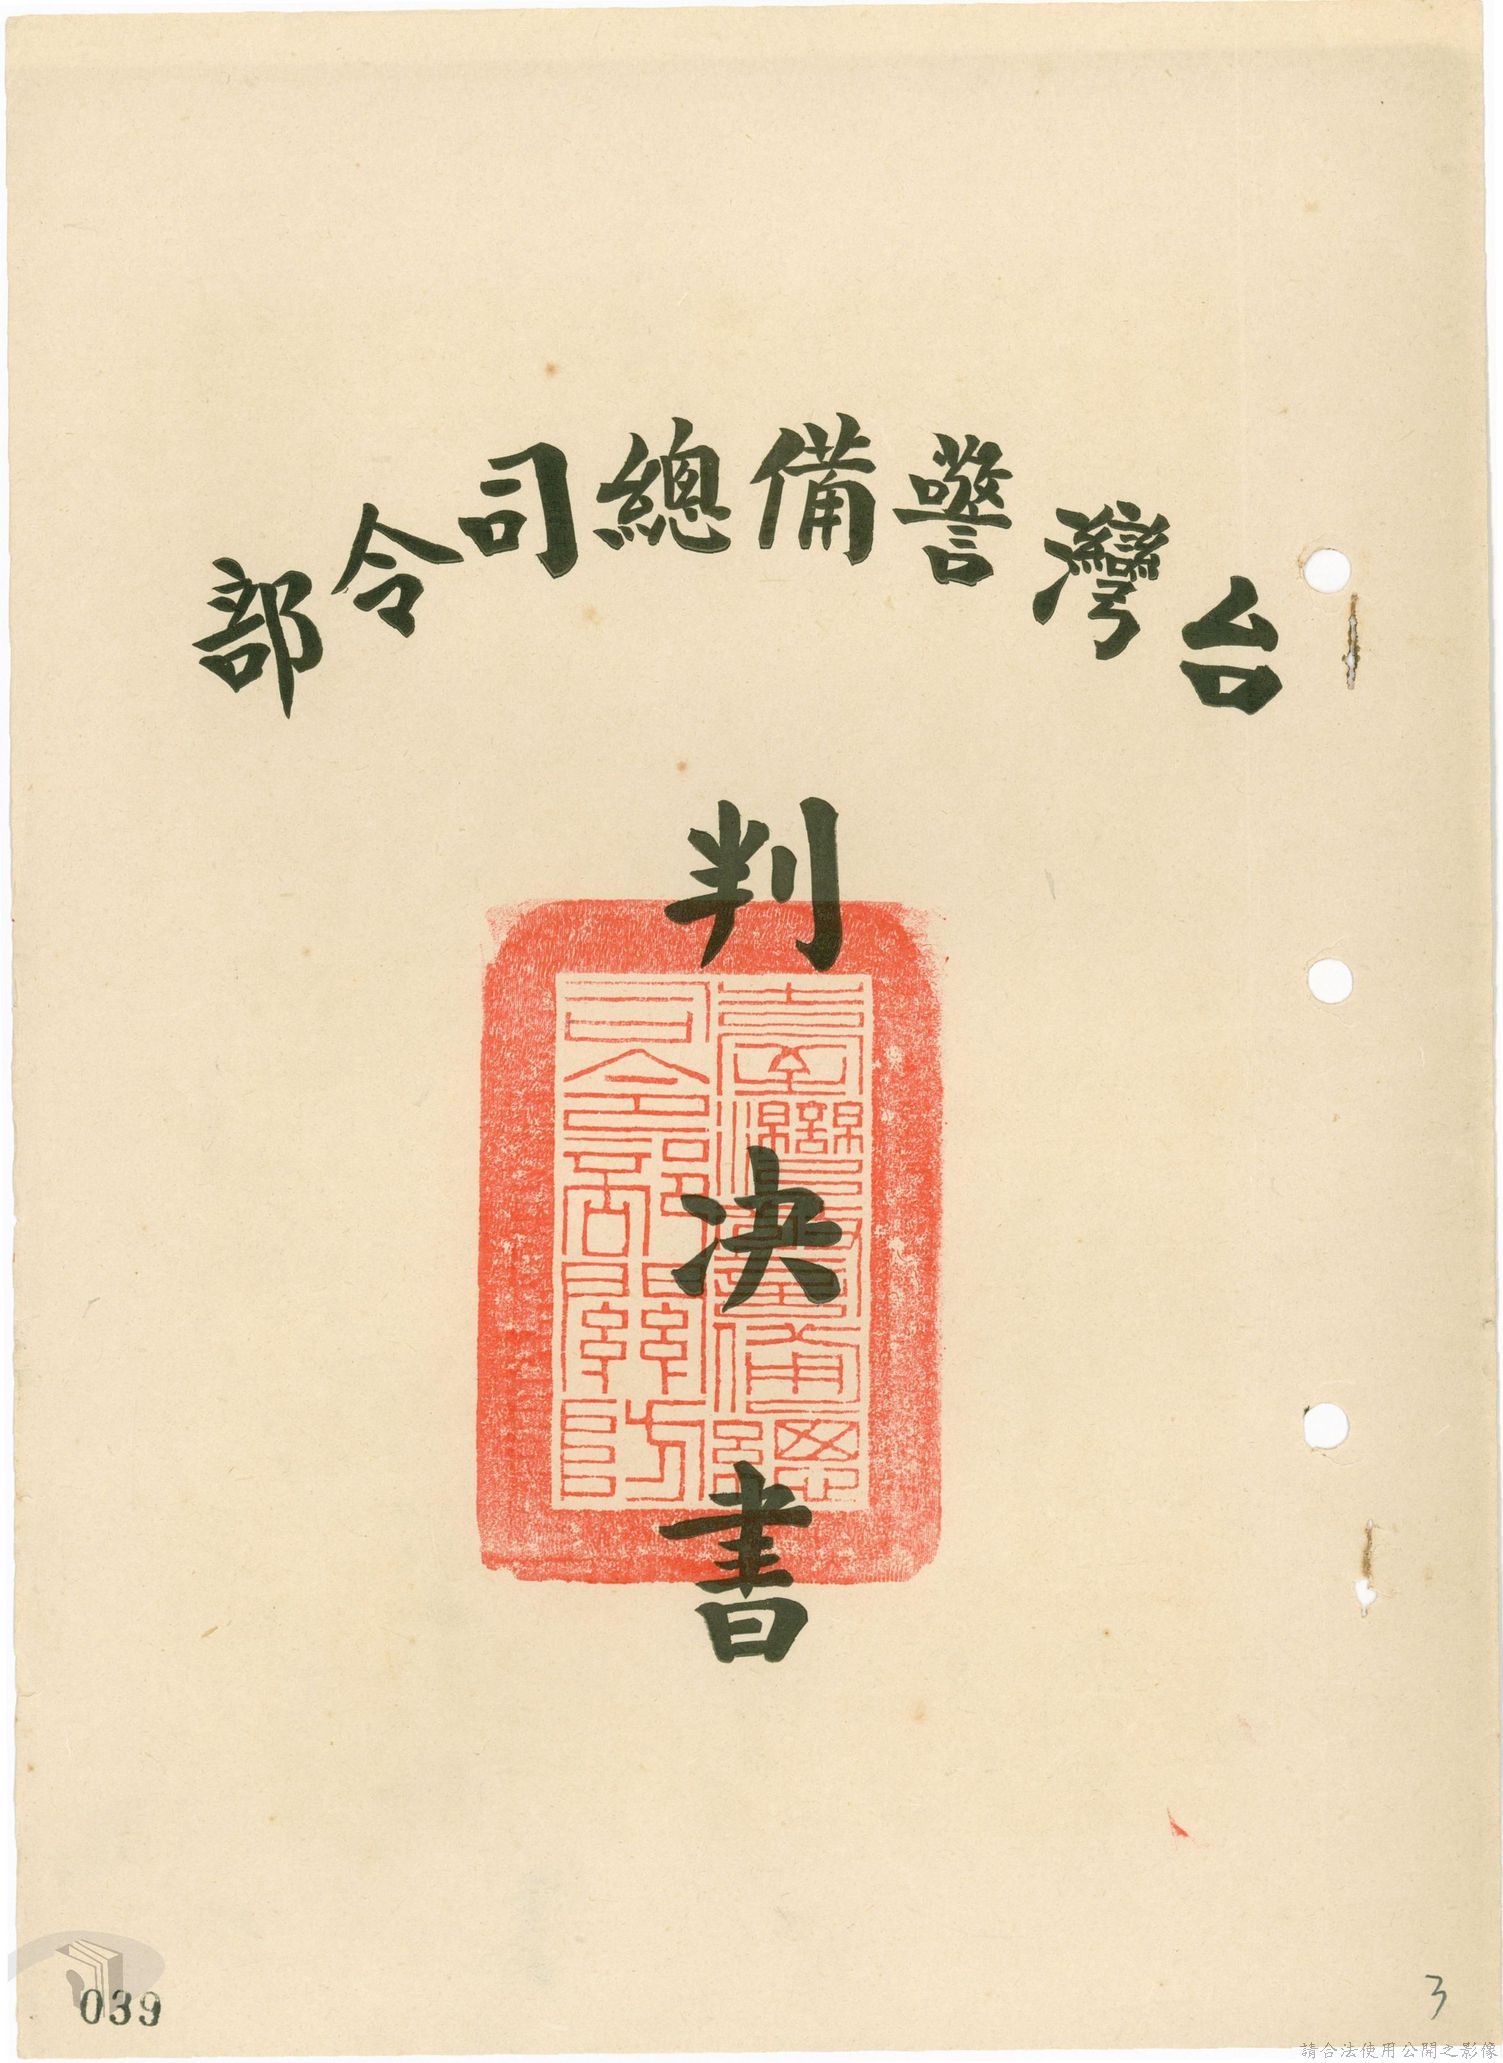 台灣警備總司令部
判決書
臺灣警備總
司令部關防
039
3
請合法使用公開之影像